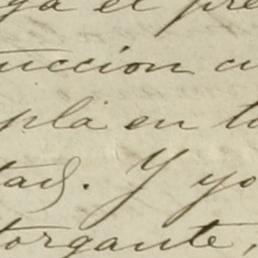 ga el pre
uccion cu
pla en to
tad. Y yo
torgante,